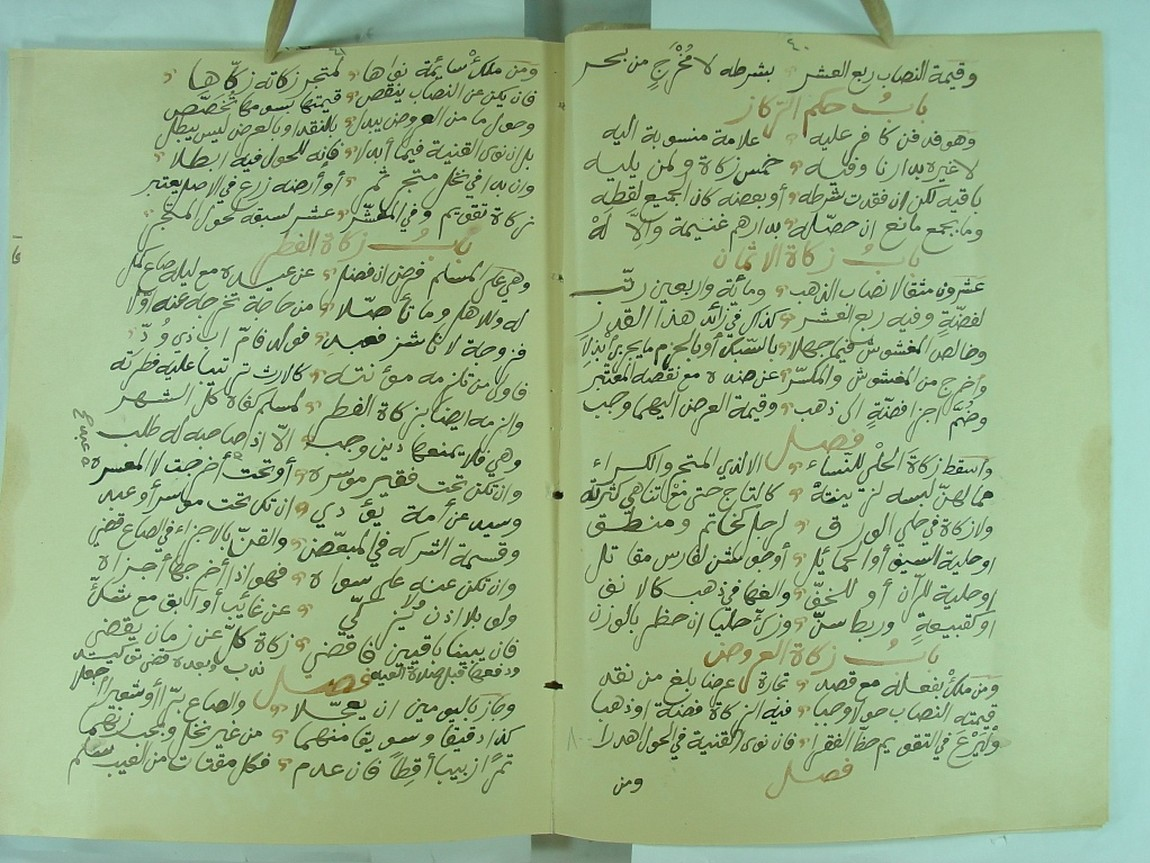 ٤٠
وقيمة النصاب ربع العشر بشرطه لا مُخْرَجٍ من بحر
بابُ حكم الركاز
وهو دفن كافر عليه علامة منسوبة اليه
لا غيره بدارنا وفيه خمس زكاة ولمن يليه
باقيه لكن ان فقدت شرطه أو بعضه كان الجميع لقطه
وما بجمع مانع ان حصّله بدارهم غنيمة والّا لَهْ
بابُ زكاة الاثمان
عشرون مثقالا نصاب الذهب ومأية واربعين رتّب
لفضّةٍ وفيه ربع العشر كذاك في زائد هذا القدر
وخالص المغشوش فيما جهلا بالسّبك أو بالحزم ما يجزى ابذلا
وأخرج من المغشوش والمكسّر عن ضده مع نقصه المعتبر
وضُمّ اجزا فضّةٍ الى ذهب وقيمة العرض اليهما وجب
فصل
واسقط زكاة الحلْي للنّساء الا لذي المتجر والكراء
مما لهنّ لبسه لزينةْ كالتاج حتى مع تناهي كثرته
ولا زكاة في حلي الورق لرجل كخاتم ومنطق
او حلية السيف أو الحمائل أو جوشن لفارس مقاتل
او حلية للرآن أو للخفّ والغها في ذهب كالانف
او كقبيعةٍ وربط سنّ وزكّ حليا ان حظر بالوزن
بابُ زكاة العروض
ومن ملكْ بفعله مع قصد تجارة عرضا بلغ من نقد
قيمته النصاب حولا وجبا فيه الزكاة فضة او ذهبا
وليَرْعَ في التقويم حظ الفقرا فان نوى القنية في الحول اهدرا
فصل
ومن
ومن ملكْ سائمة نواها لمتجر زكاته زكّاها
فان يكن عن النصاب ينقص قيمتها بسومها تُخَصَّص
وحول ما من العروض يبدل بالنقد او بالعرض ليس يبطل
بل ان نوى القنية فيما أبدلا فإنه للحول فيه ابطلا
وان بدا في نخل متجر ثمر أو أرضه زرع في الاصل يعتبر
زكاة تقويم وفي المعشّر عشر لسبقه لحول المتجر
بابُ زكاة الفطر
وهي على المسلم فرض ان فضل عن عيده مع ليله صاع كمل
له وللاهل وما تأصّلا من حاجة تخرجه عنه أوّلا
فزوجة لا ناشز فعبد فولد فامّ اب ذي وُدّ
فاولى من تلزمه مؤنته كالارث ترتيبا عليه فطرته
والزمه ايضا بزكاة الفطر لمسلم كفاه كل الشهر
وهي فلا يمنعها دين وجب الّا اذا صاحبه له طلب
وان تكن تحت فقير موسرة أو تحت أخرجت لا المعسره
وسيد عن أمة يؤدي ان تك تحت موسر أو عبد
وقسمة الشركه في المبعّض والقنّ بالاجزاء في الصاع قضي
وان تكن عنه على سواه فهو اذا أخرجها أجزاه
ولو بلا اذن ولْيزكّي عن غائب أو آبق مع شكّ
فان يبينا باقيين فاقضي زكاة كلّ عن زمان يقضي
ودفعها قبل صلاة العيد ندب وبعده قضى توكيد
فصل
وجاز باليومين ان يعجّلا والصاع برّا أو شعيرا جعلا
كذا دقيقا وسويقا منهما من غير نخل وبحب زنهما
تمرًا زبيبا أقِطًا فان عدم فكل مقتات من العيب سلم